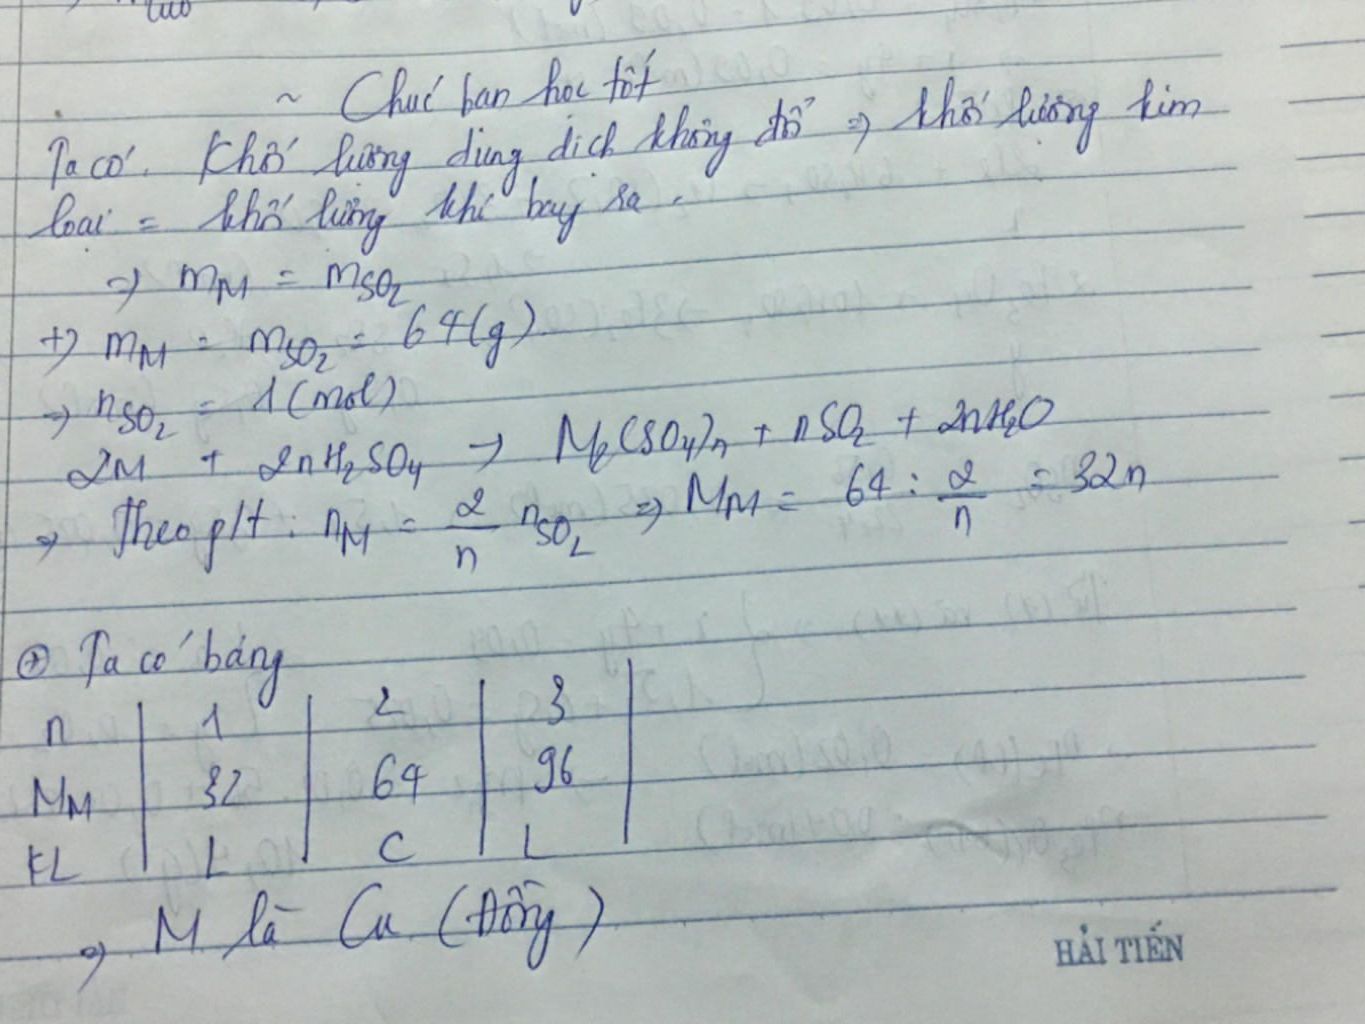 ~ Chúc bạn học tốt
Ta có. Khối lượng dung dịch không đổi ⇒ khối lượng kim
loại = khối lượng khí bay ra.
⇒ mM = mSO2
+) mM = mSO2 = 64(g)
⇒ nSO2 = 1 (mol)
2M + 2nH2SO4 → M2(SO4)n + nSO2 + 2nH2O
⇒ Theo p/t: nM = 2/n nSO2 ⇒ MM = 64 : 2/n = 32n
⊕ Ta có bảng
n | 1 | 2 | 3
MM | 32 | 64 | 96
KL | L | C | L
⇒ M là Cu (Đồng)
HẢI TIẾN